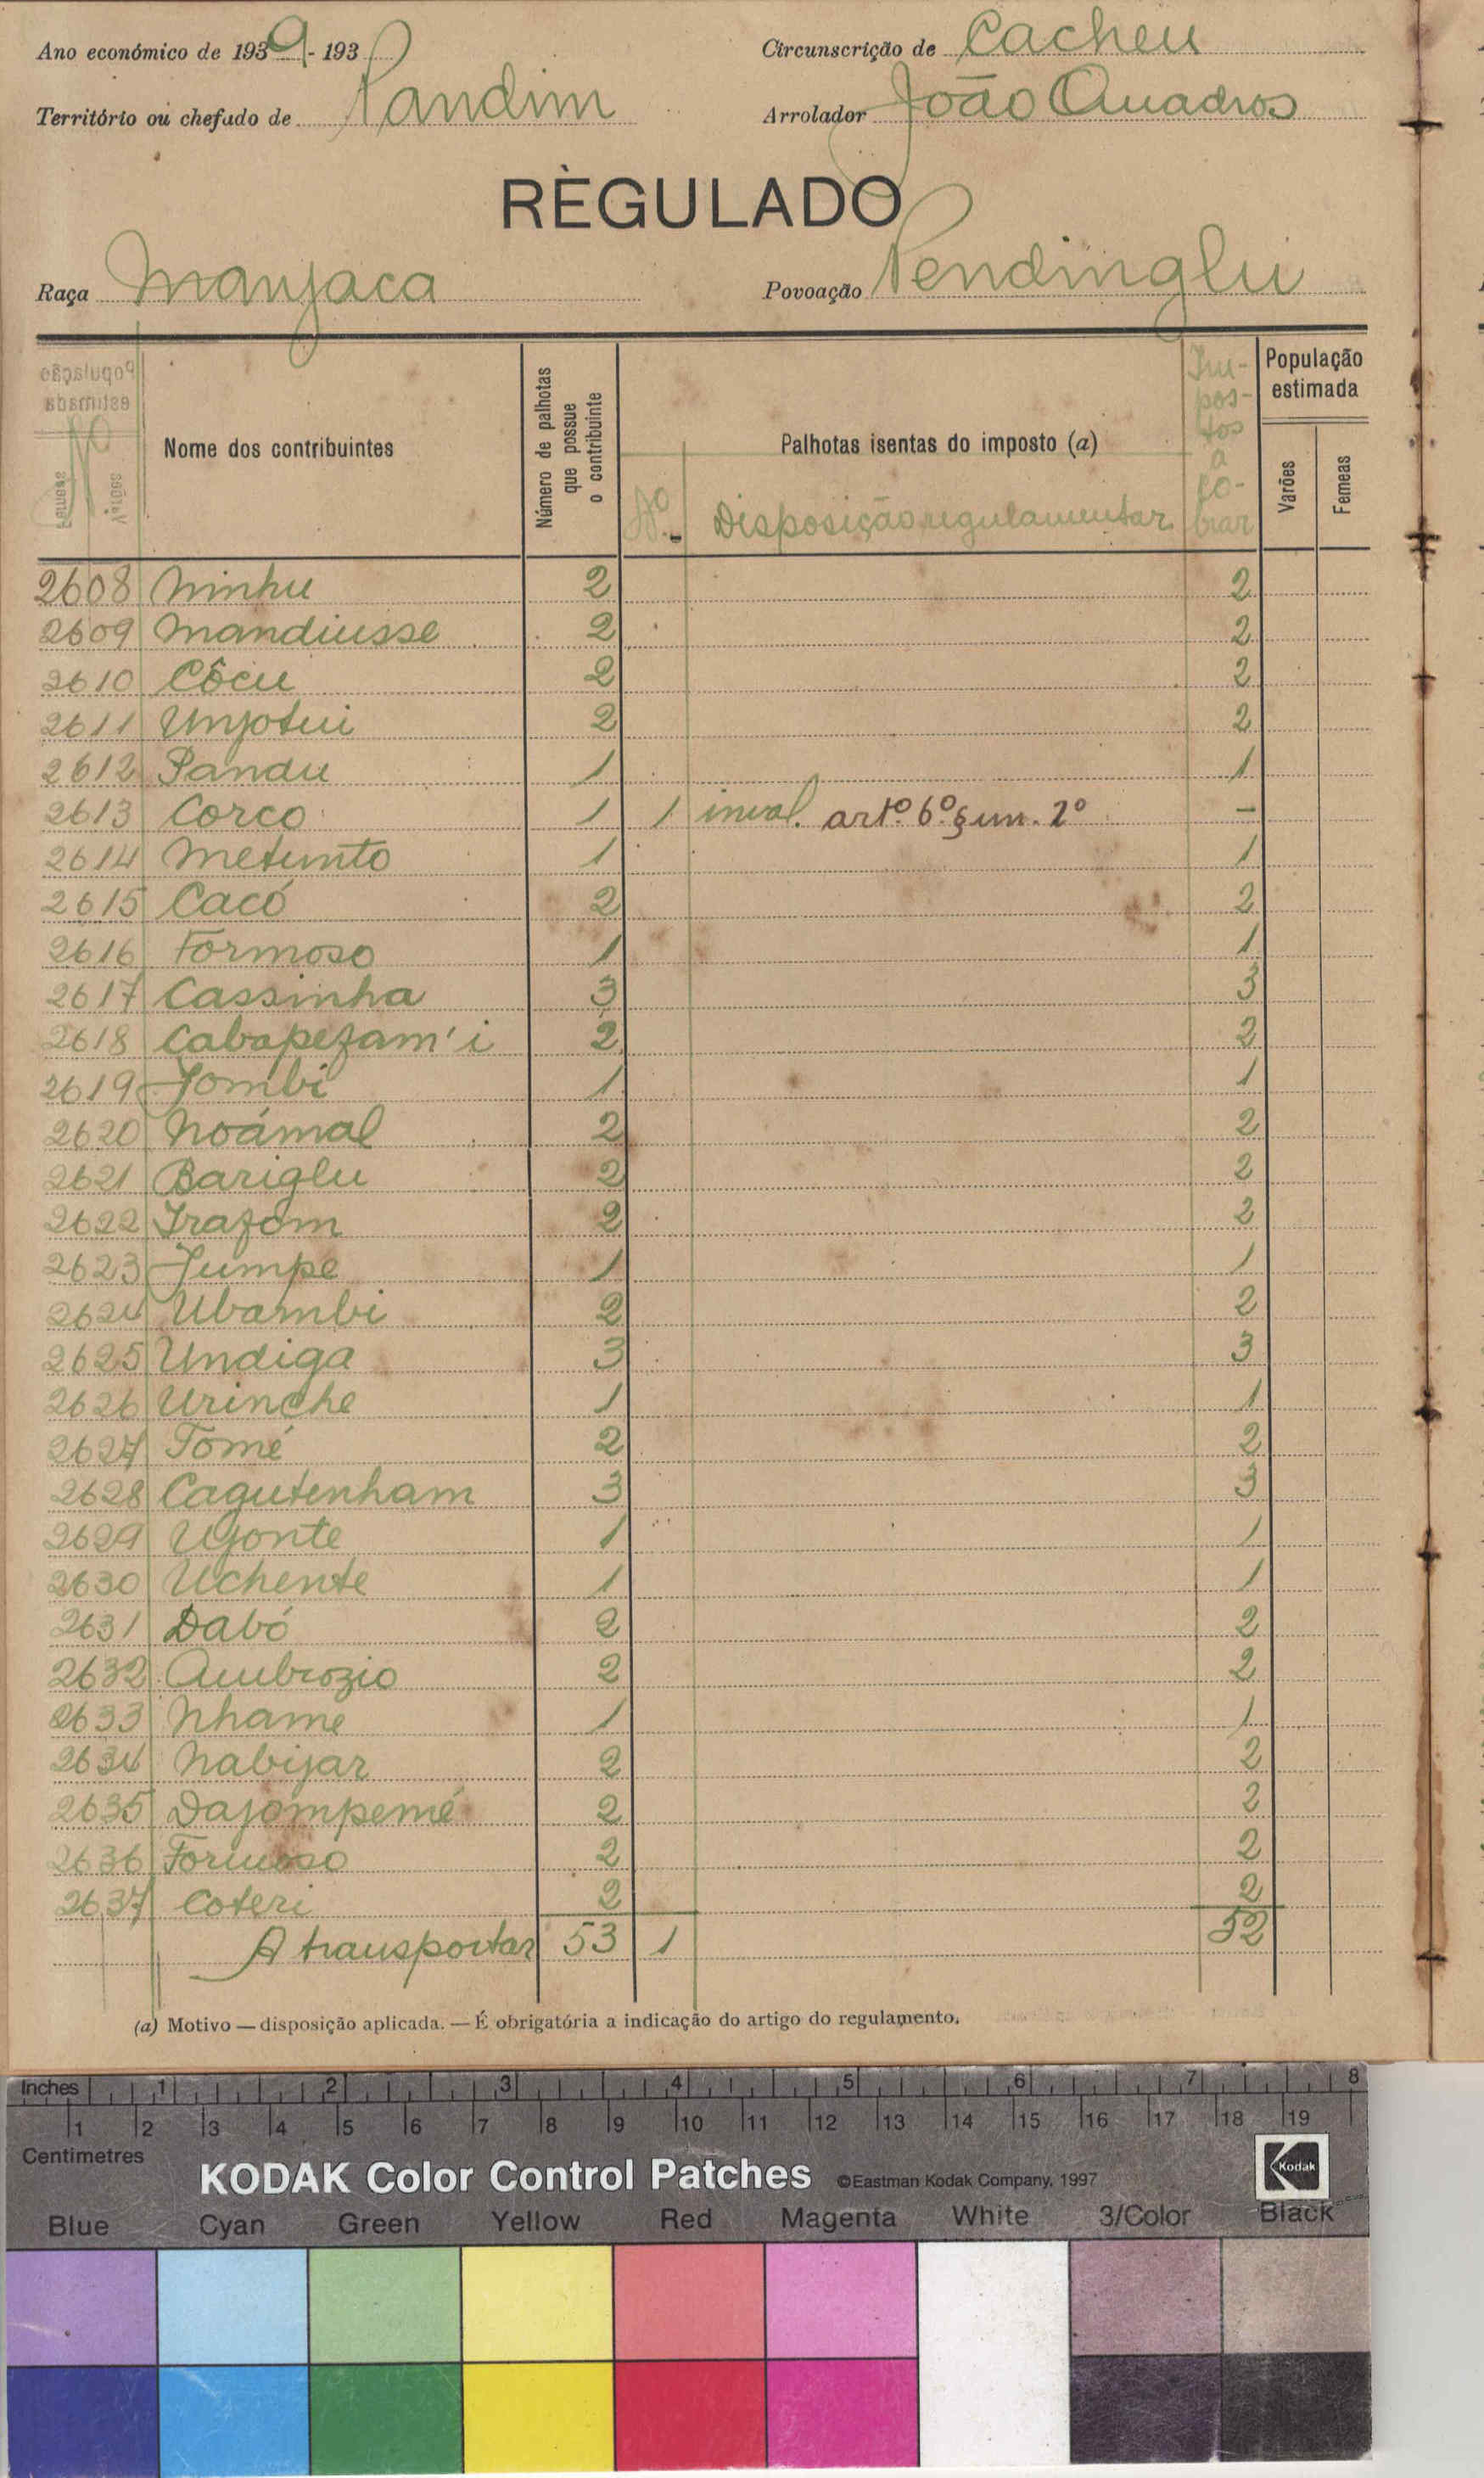 Ano económico de 1939 - 193
Circunscrição de Cacheu
Território ou chefado de Pandim
Arrolador João Quadros
RÈGULADO
Raça Manjaca
Povoação Pendinglu
População estimada
Nº
Femeas
Varões
Nome dos contribuintes
Número de palhotas que possue o contribuinte
Palhotas isentas do imposto (a)
Nº
Disposição regulamentar
Impostos a cobrar
População estimada
Varões
Femeas
2608 Ninhu 2 2
2609 Mandiusse 2 2
2610 Côcu 2 2
2611 Unjotui 2 2
2612 Pandu 1 1
2613 Corco 1 1 inval. artº. 6º. § un. 2º –
2614 Metunto 1 1
2615 Cacó 2 2
2616 Formoso 1 1
2617 Cassinha 3 3
2618 Cabapezam'i 2 2
2619 Jombi 1 1
2620 Noámal 2 2
2621 Bariglu 2 2
2622 Irazom 2 2
2623 Jumpe 1 1
2624 Ubambi 2 2
2625 Undiga 3 3
2626 Urinche 1 1
2627 Tomé 2 2
2628 Cagutenham 3 3
2629 Ujonte 1 1
2630 Uchente 1 1
2631 Dabó 2 2
2632 Ambrozio 2 2
2633 Nhame 1 1
2634 Nabijar 2 2
2635 Dajompemé 2 2
2636 Formoso 2 2
2637 Coteri 2 2
A transportar 53 1 52
(a) Motivo — disposição aplicada. — É obrigatória a indicação do artigo do regulamento.
Inches 1 2 3 4 5 6 7 8
1 2 3 4 5 6 7 8 9 10 11 12 13 14 15 16 17 18 19
Centimetres
KODAK Color Control Patches ©Eastman Kodak Company, 1997 Kodak
Blue Cyan Green Yellow Red Magenta White 3/Color Black